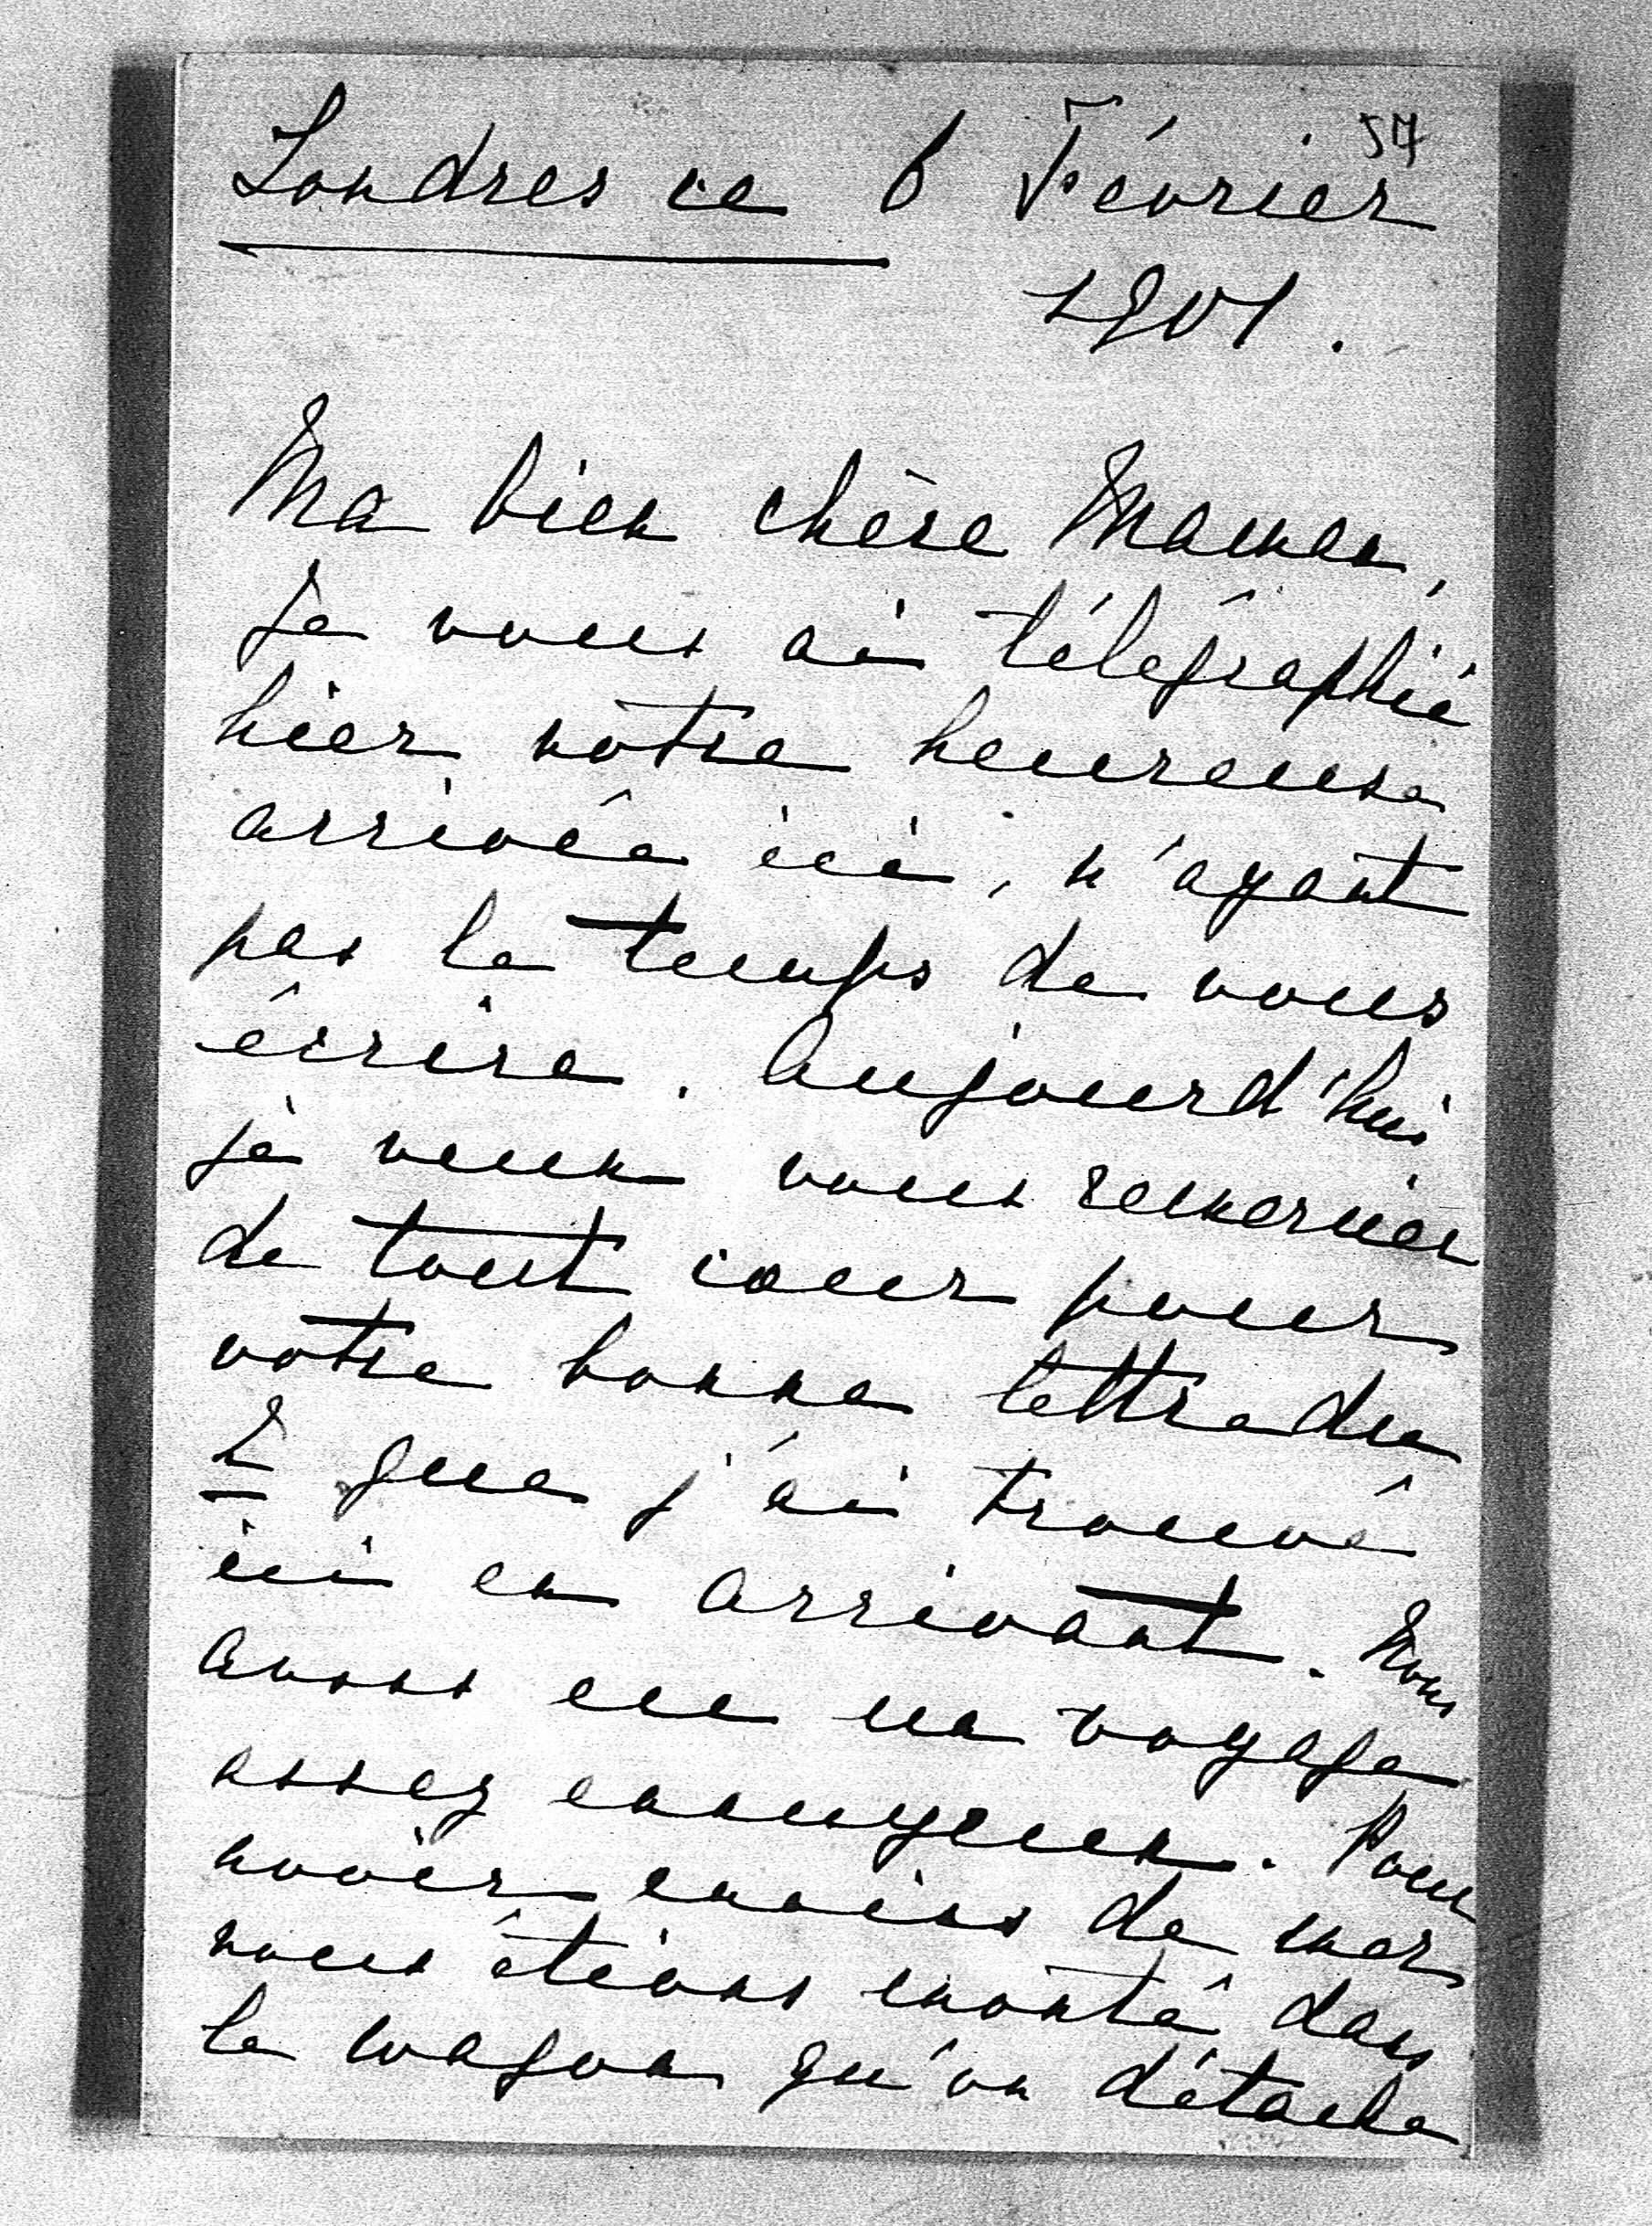 57
Londres ce 6 Février
1901.
Ma bien chère Maman,
Je vous ai télégraphié
hier notre heureuse
arrivée ici, n'ayant
pas le temps de vous
écrire. Aujourd'hui
je veux vous remercier
de tout cœur pour
votre bonne lettre du
2 que j'ai trouvé
ici en arrivant. Nous
avons eu un voyage
assez ennuyeux. Pour
avoir moins de mer
nous étions monté dans
le wagon qu'on détache